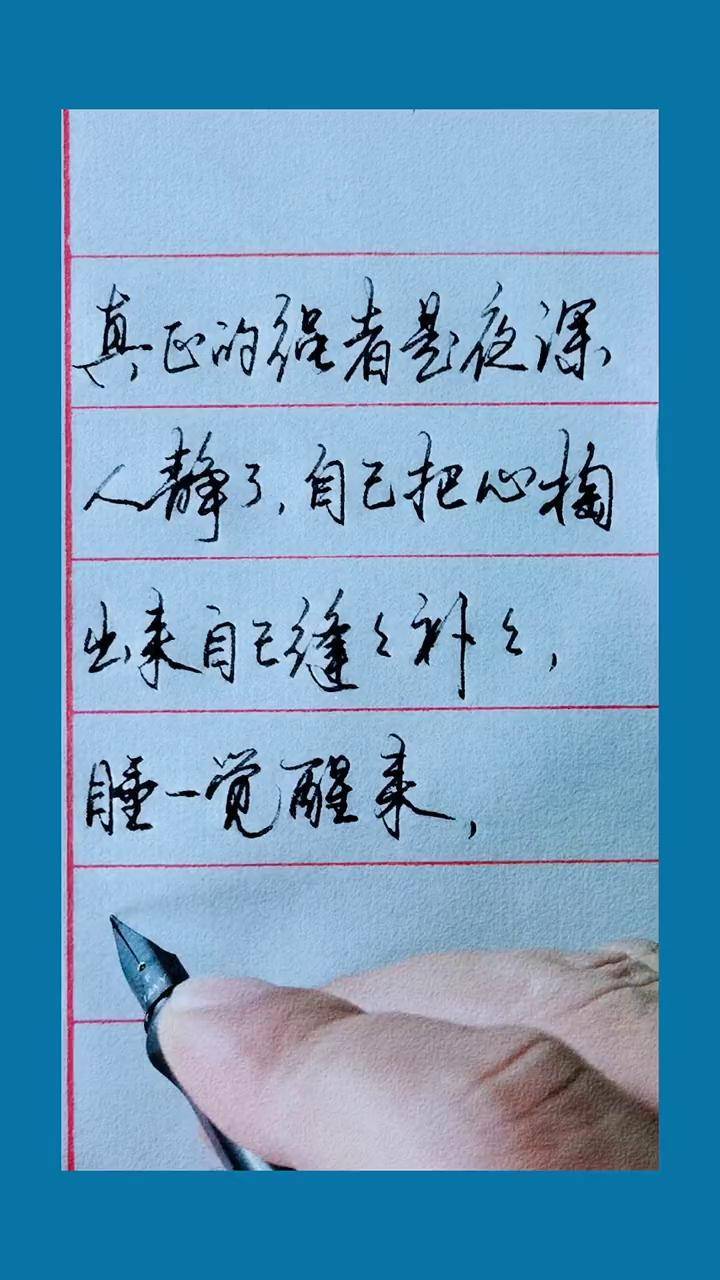 真正的强者是夜深
人静了,自己把心掏
出来自己缝々补々,
睡一觉醒来,